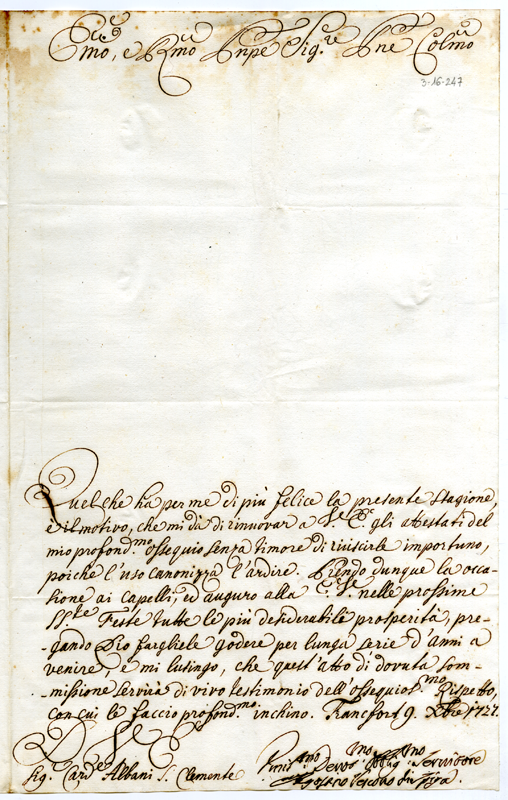 Emo, e Rmo Pnpe Sig.re Pne Colmo
3-16-247
Quel che ha per me di più felice la presente Stagione,
è il motivo, che mi dà di rinnovar a V.E. gli attestati del
mio profond.mo ossequio senza timore di riuscirle importuno,
poiche l'uso canonizza l'ardire. Prendo dunque la occa-
sione ai capelli, ed auguro alla E.V. nelle prossime
SS.te Feste tutte le più desiderabile prosperità, pre-
-gando Dio fargliele godere per lunga serie d'anni a
venire, e mi lusingo, che quest'atto di dovuta som-
-missione servirà di vivo testimonio dell'ossequios.mo Rispetto,
con cui le faccio profond.mo inchino. Francfort 9. Xbre 1721.
D V E
Sig. Card.e Albani S. Clemente
Umil.mo Devot.mo Obblig.mo Servidore